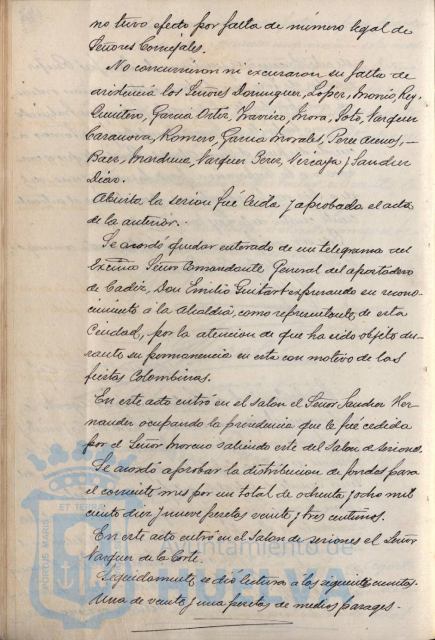 no tuvo efecto por falta de número legal de
Señores Concejales.
No concurrieron ni excusaron su falta de
asistencia los Señores Dominguez, Lopez, Monis, Rey,
Quintero, Garcia Ortiz, Traviso, Mora, Soto, Vazquez
Casanova, Romero, Garcia Morales, Perez
Baez, Vazquez Perez, Vizcaya y Sanchez
Diaz.
Abierta la sesion fué leida y aprobada el acta
de la anterior.
Se acordó quedar enterado de un telegrama del
Excmo Señor Comandante General del apostadero
de Cadiz, Don Emilio Guitart expresando su recono-
cimiento á la Alcaldia, como representante de esta
Ciudad, por la atencion de que ha sido objeto du-
rante su permanencia en esta con motivo de las
fiestas Colombinas.
En este acto entró en el salon el Señor Sanchez Her-
nandez ocupando la presidencia que le fué cedida
por el Señor Moreno saliendo este del Salon de sesiones.
Se acordó aprobar la distribucion de fondos para
el corriente mes por un total de ochenta y ocho mil
ciento diez y nueve pesetas veinte y tres centimos.
En este acto entró en el Salon de sesiones el Señor
Vazquez de la Corte.
Seguidamente se dio lectura a las siguientes cuentas.
Una de veinte y una pesetas de medios pasages.
PORTUS MARIS ET TERRAE
Ayuntamiento de
HUELVA